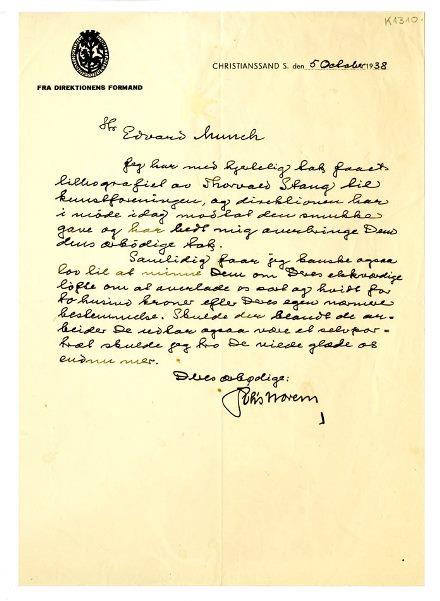 K1310
CHRISTIANSSAND S. den 5 October 1938
FRA DIREKTIONENS FORMAND
Hr Edvard Munch
Jeg har med hjertelig tak faaet
lithografiet av Thorvald Stang til
kunstforeningen, og direktionen har
i møde idag mottat den smukke
gave og har bedt mig overbringe Dem
dens ærbødige tak.
Samtidig faar jeg kanske ogsaa
lov til at minne Dem om Deres elskværdige
løfte om at overlade os sort og hvidt for
to husind kroner efter Deres egen nærmere
bestemmelse. Skulde der blandt de ar-
beider De utvar ogsaa være et selvpor-
træt skulde jeg tro De vilde glæde os
endnu mer.
Deres ærbødige: